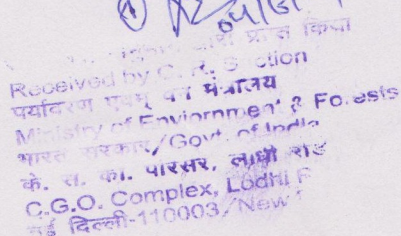 प्राप्त किया
Received by C. R. Section
पर्यावरण एवम् वन मंत्रालय
Ministry of Enviornment & Forests
भारत सरकार/Govt. of India
के. स. का. परिसर, लोधी रोड
C.G.O. Complex, Lodhi R
नई दिल्ली-110003/New